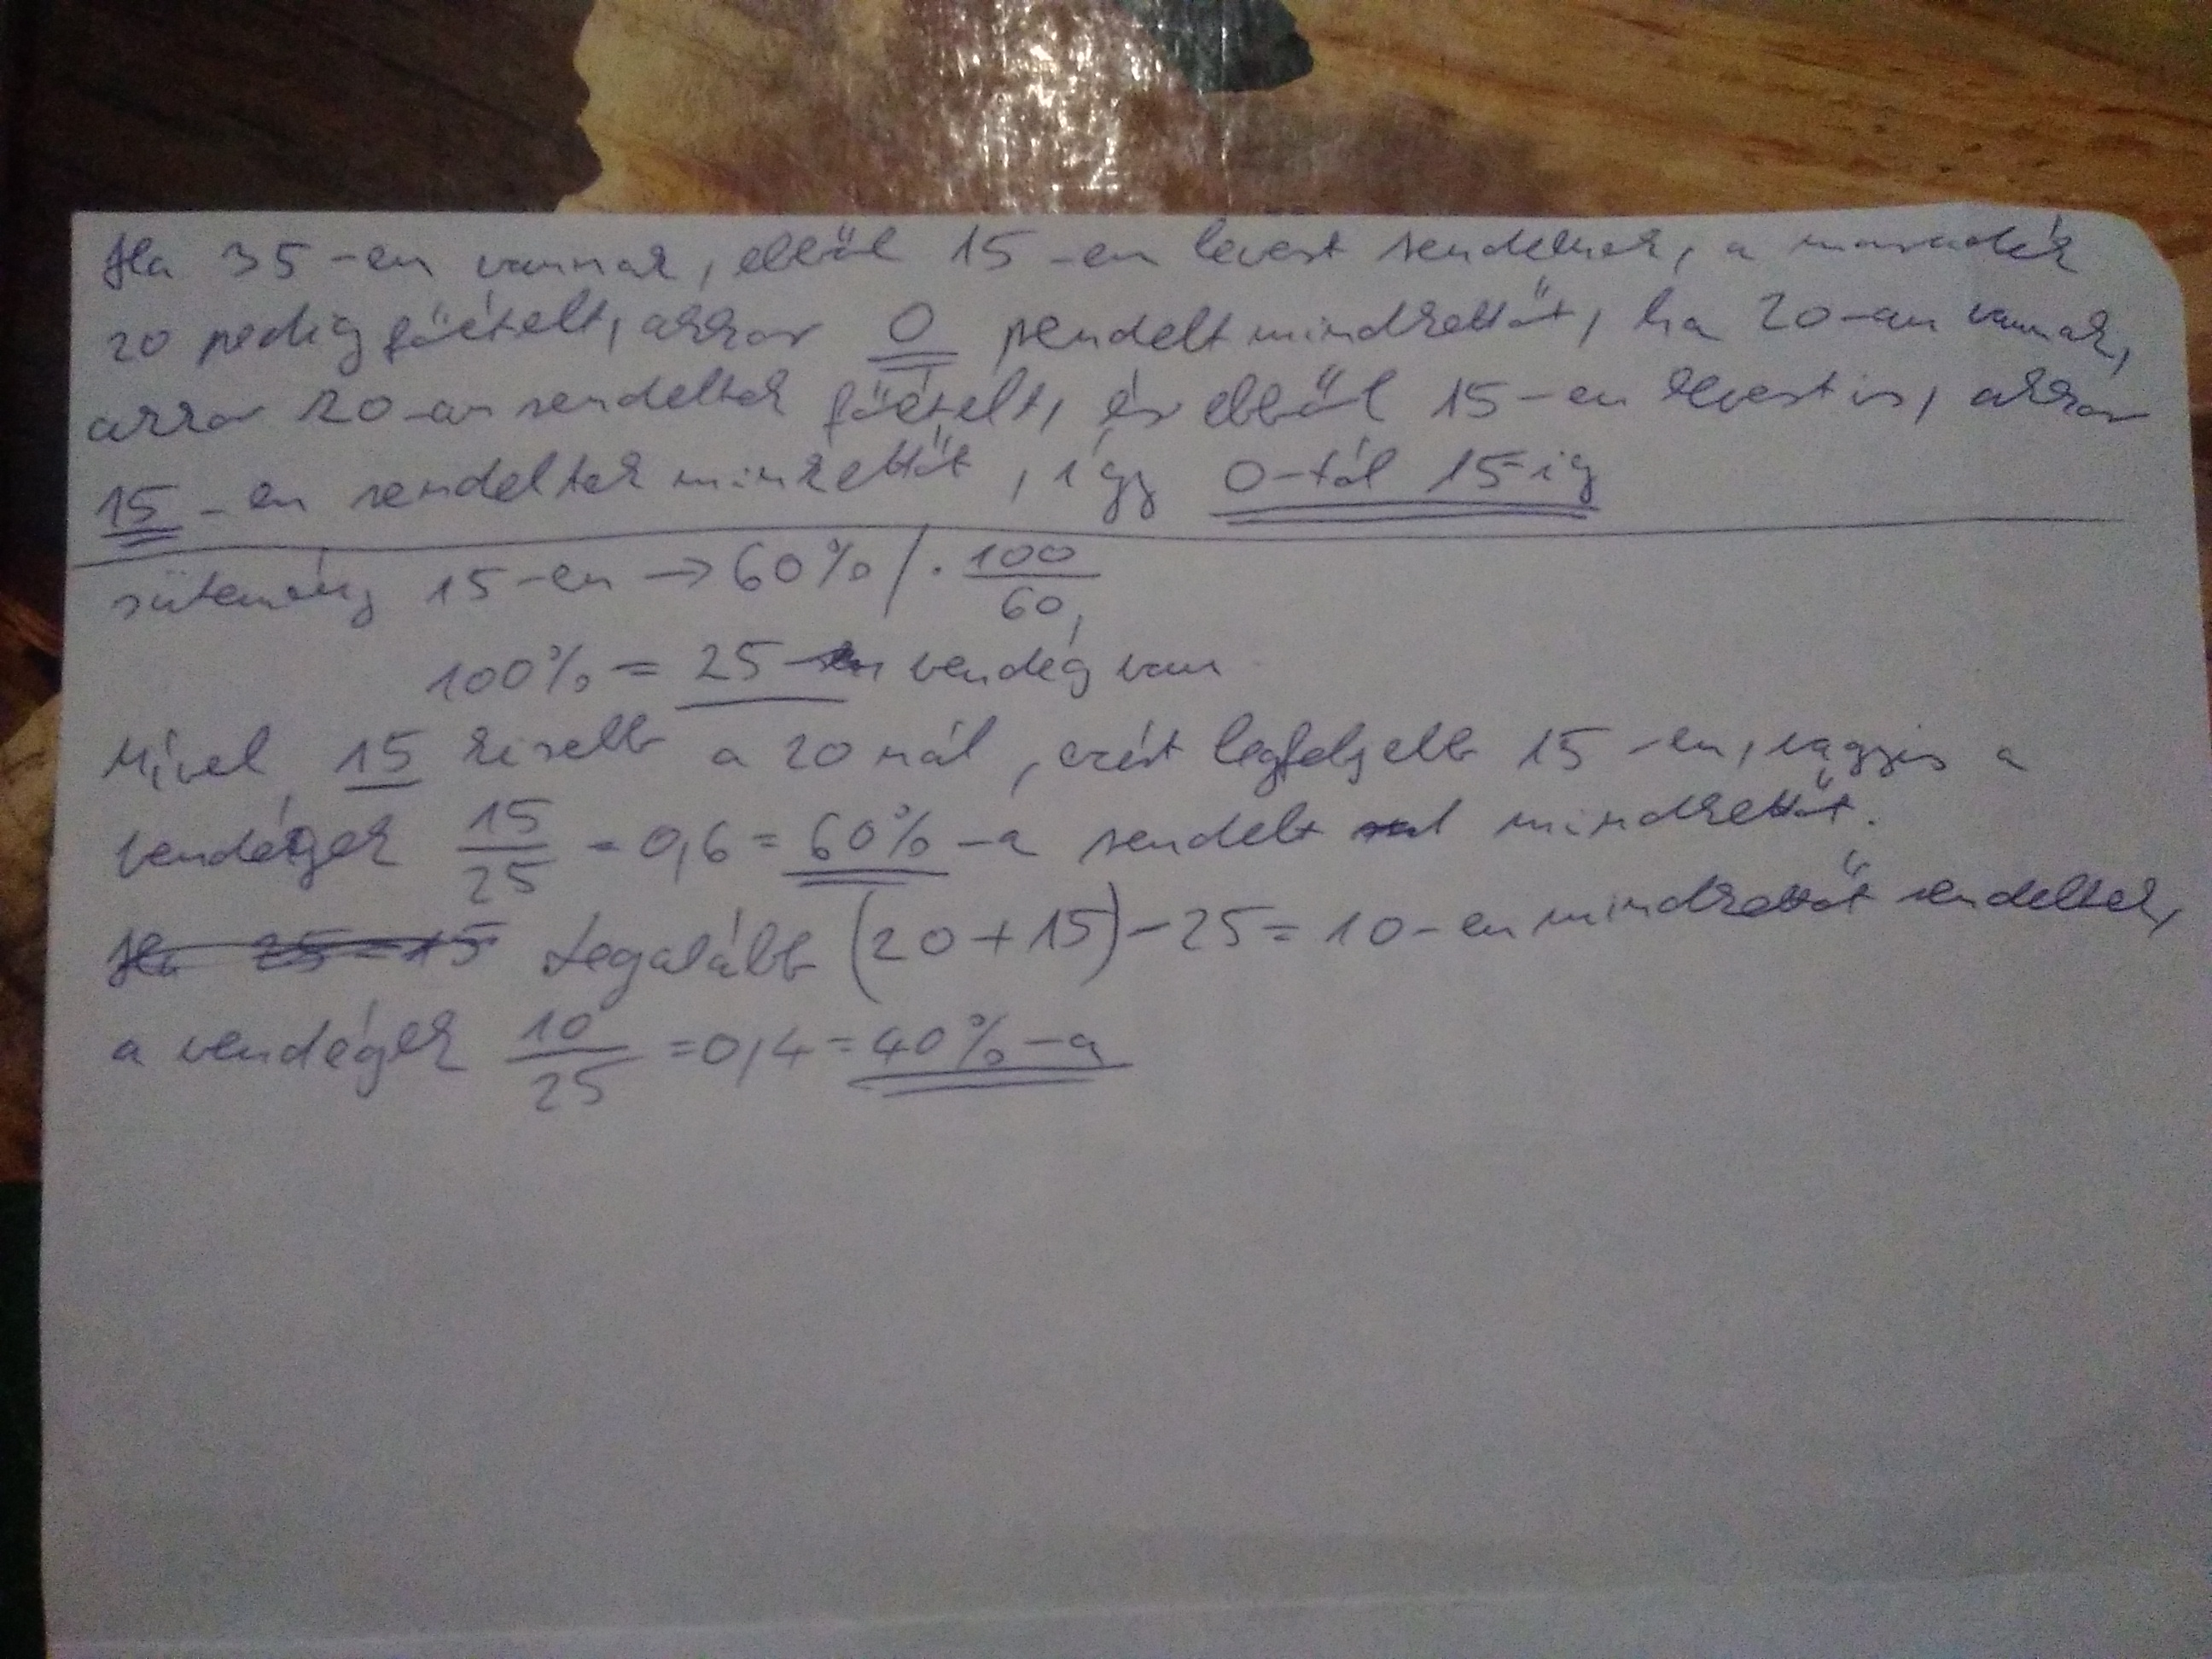 Ha 35-en vannak, ebből 15-en levest rendelnek, a maradék
20 pedig főételt, akkor 0 rendelt mindkettőt, ha 20-an vannak,
akkor 20-an rendeltek főételt, és ebből 15-en levest is, akkor
15-en rendeltek minkettőt, így 0-tól 15-ig
sütemény 15-en → 60% / · 100/60
100% = 25 vendég van
Mivel 15 kisebb a 20 nál, ezért legfeljebb 15-en, vagyis a
vendégek 15/25 = 0,6 = 60%-a rendelt mindkettőt.
Ha 25-15 Legalább (20+15)-25=10-en mindkettőt rendeltek,
a vendégek 10/25 = 0,4 = 40%-a